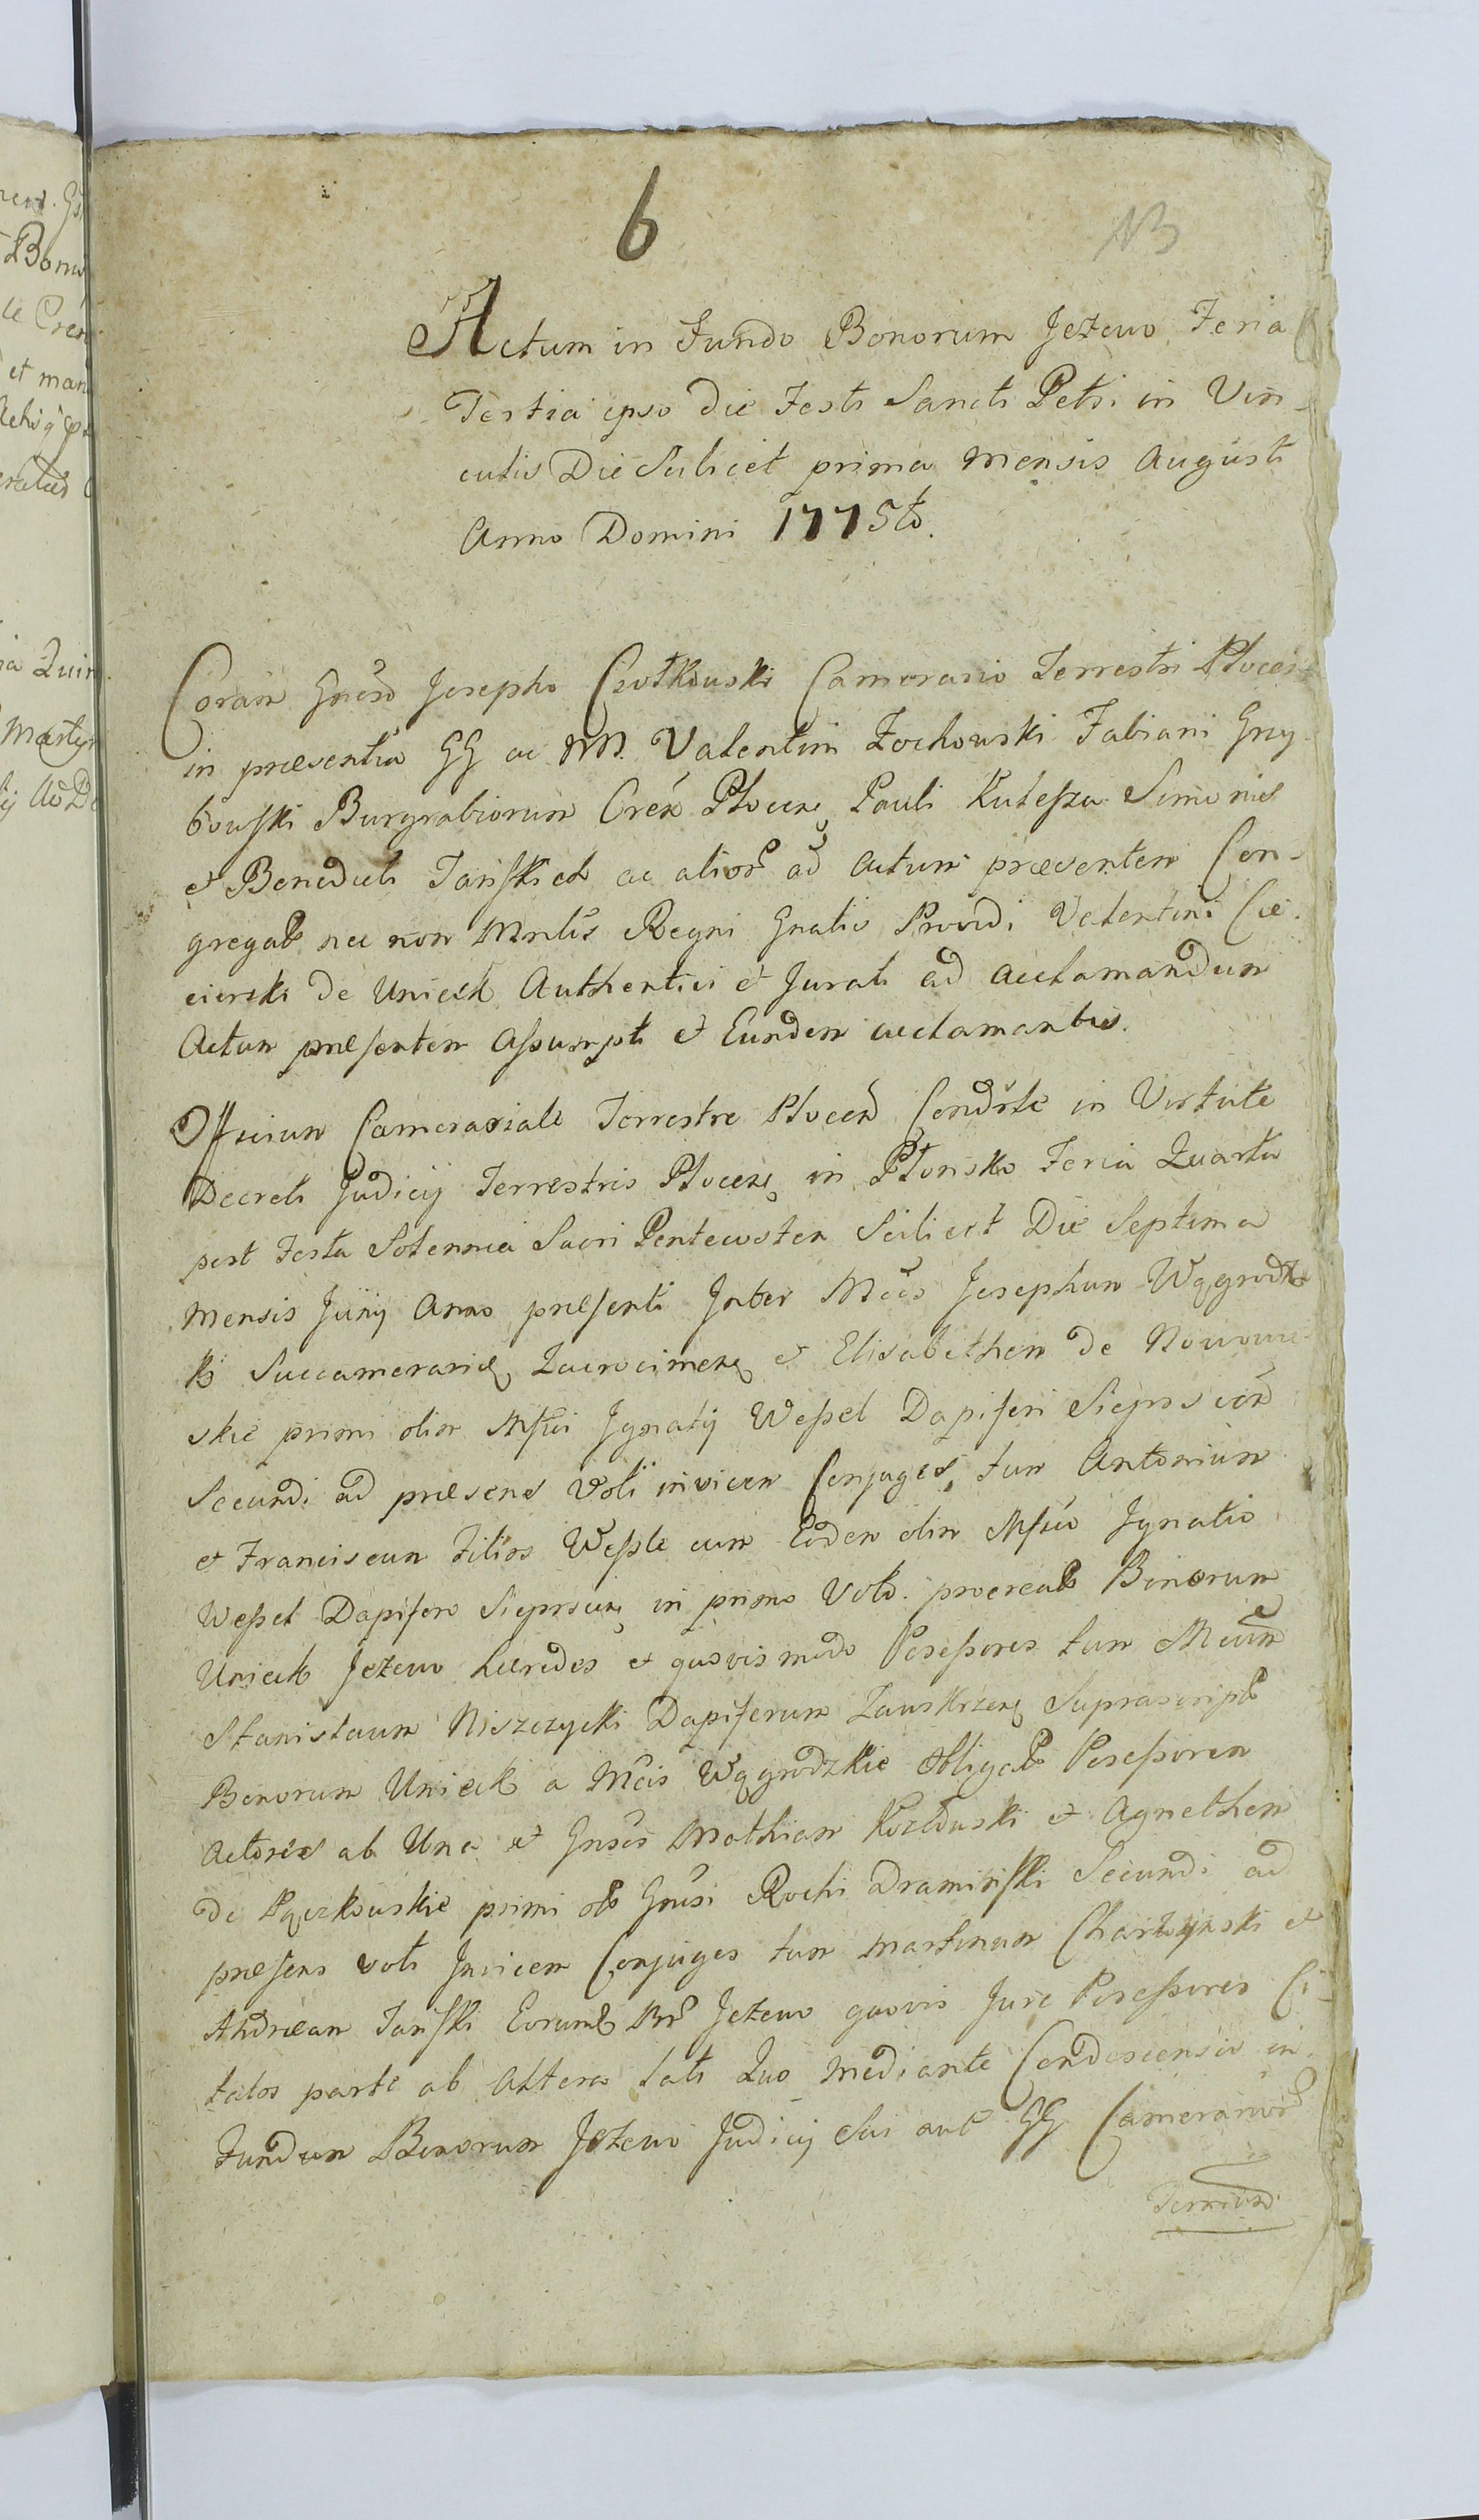 6
NB
Actum in Fundo Bonorum Jeżewo Feria
Tertia ipso die Festi Sancti Petri in Vin-
culis Die Scilicet prima mensis Augusti
Anno Domini 1775to.
Coram Gnoso Josepho Czołkowski Camerario Terrestri Plocen
in præsentia GG ac NN. Valentini Żochowski Fabiani Grzy-
bowski Burgrabiorum Cren Plocen Pauli Kulesza Simonis
et Benedicti Tański ac alior ad Actum præsentem Con-
gregat nec non Mnlis Regni Gnalis Providi Valentini Cie-
cierski de Unieck Authentici et Jurati ad acclamandum
Actum præsentem Assumpti et Eundem acclamantis.
Officium Camerariale Terrestre Plocen Cond in Virtute
Decreti Judicij Terrestris Plocen in Płonsko Feria Quarta
post Festa Solennia Sacri Pentecostes Scilicet Die Septima
Mensis Junij Anno præsenti Inter Mcos Josephum Wągrodz
ki Succamerarid Zacrocimen et Elisabetham de Nowowie-
skie primi olim Mfici Ignatij Wessel Dapiferi Sieprscien
Secundi ad præsens Voti invicem Conjuges, tum Antonium
et Franciscum Filios Wessle cum Eodem olim Mfico Ignatio
Wessel Dapifero Sieprscien in primo Voto procreat Bonorum
Unieck Jeżewo hæredes et quovis modo Possessores tum Mcum
Stanislaum Niszczycki Dapiferum Zawskrzen Suprascript
Bonorum Unieck a Mcis Wągrodzkie Obligat Possessorem
Actores ab Una et Gnosos Mathiam Kozłowski et Agnethem
de Pączkowskie primi Gnosi Rochi Draminski Secundi ad
præsens voti Invicem Conjuges tum Martinum Charzyński et
Andream Tański Eorumd Br Jeżewo quovis Jure Possessores Ci-
tatos parte ab Altera lati Quo mediante Condescensio in
Fundum Bonorum Jeżewo Judicij Sui aut GG Camerarior
Terrium